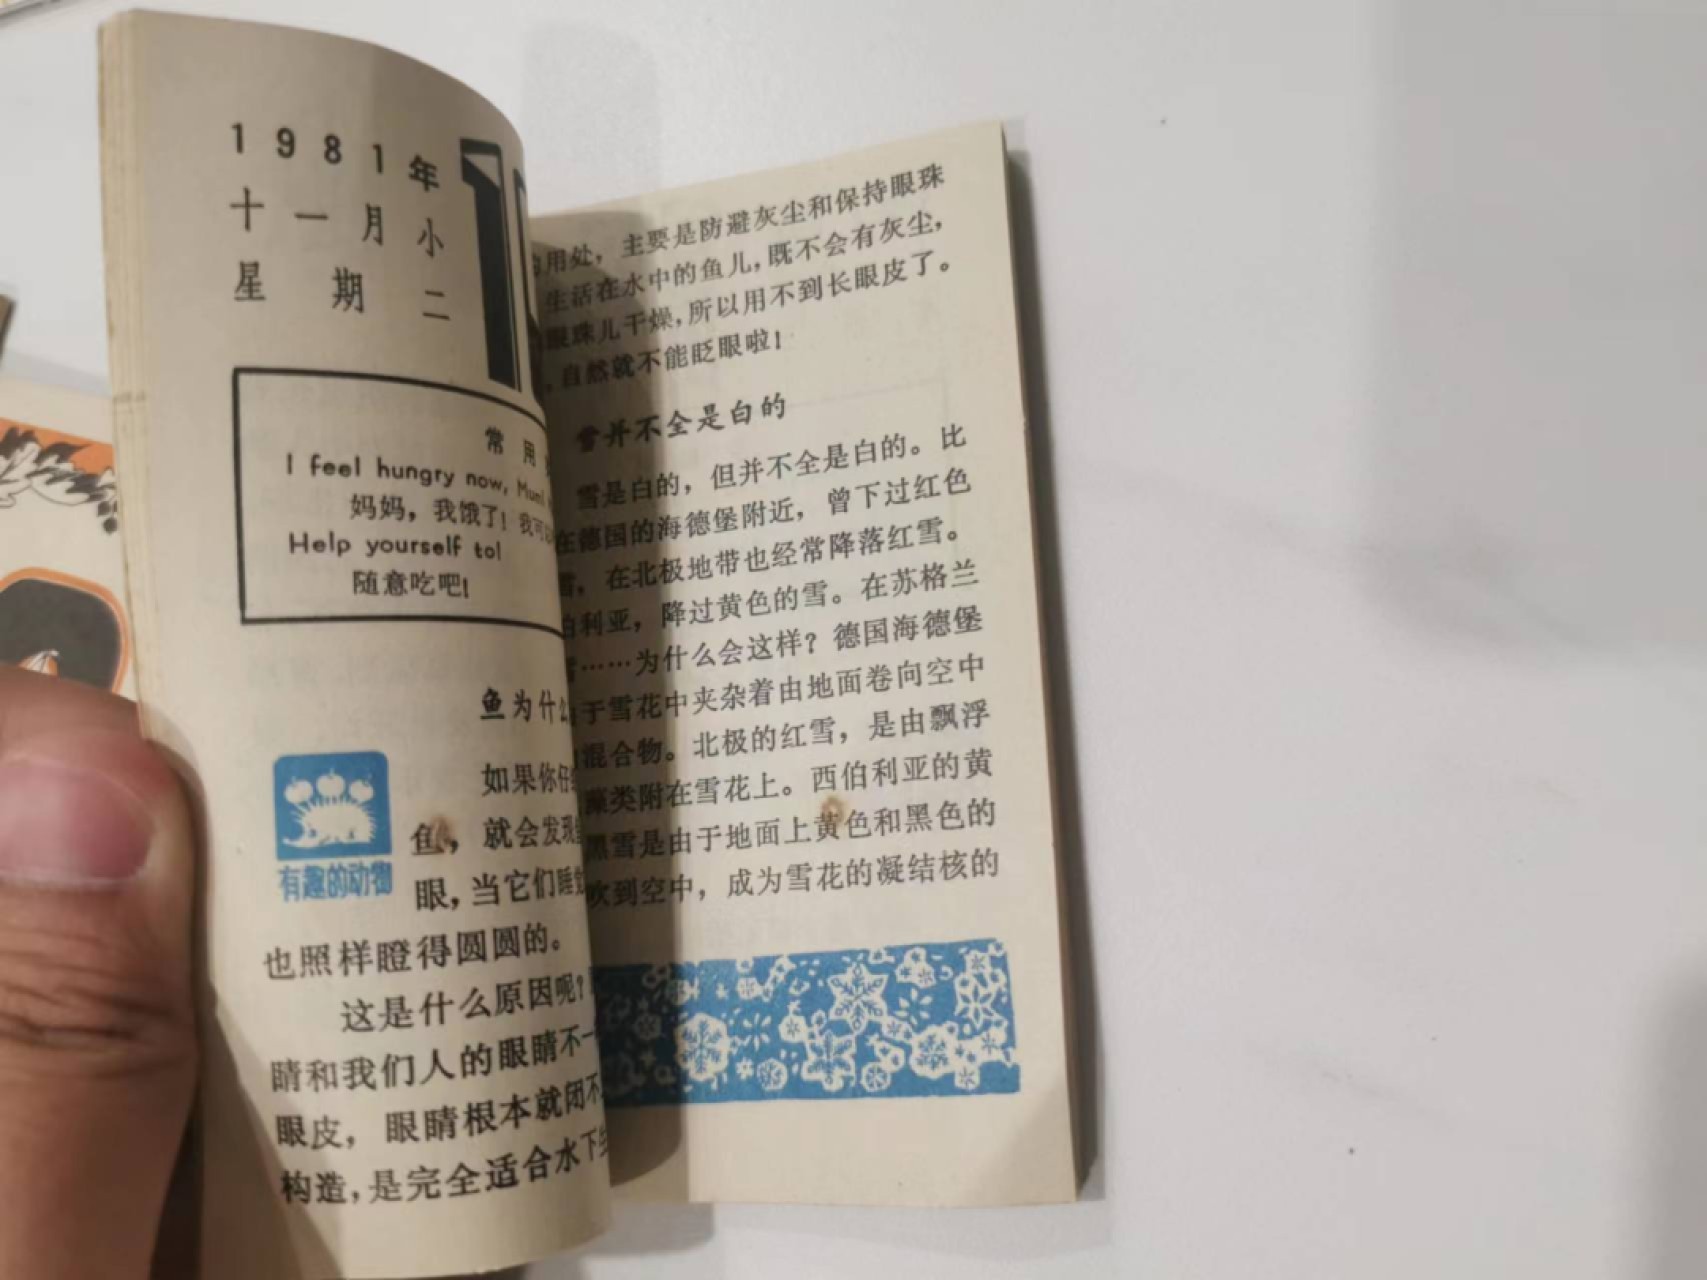 1981年
十一月小
星期二
常用
I feel hungry now, Mum!
妈妈，我饿了！我可
Help yourself to!
随意吃吧!
鱼为什
如果你仔
鱼，就会发现
眼，当它们睡
也照样瞪得圆圆的。
这是什么原因呢？
睛和我们人的眼睛不一
眼皮，眼睛根本就闭不
构造，是完全适合水下
有趣的动物
用处，主要是防避灰尘和保持眼珠
生活在水中的鱼儿，既不会有灰尘，
眼珠儿干燥，所以用不到长眼皮了。
，自然就不能眨眼啦！
雪并不全是白的
雪是白的，但并不全是白的。比
在德国的海德堡附近，曾下过红色
雪，在北极地带也经常降落红雪。
伯利亚，降过黄色的雪。在苏格兰
……为什么会这样？德国海德堡
于雪花中夹杂着由地面卷向空中
混合物。北极的红雪，是由飘浮
藻类附在雪花上。西伯利亚的黄
黑雪是由于地面上黄色和黑色的
吹到空中，成为雪花的凝结核的